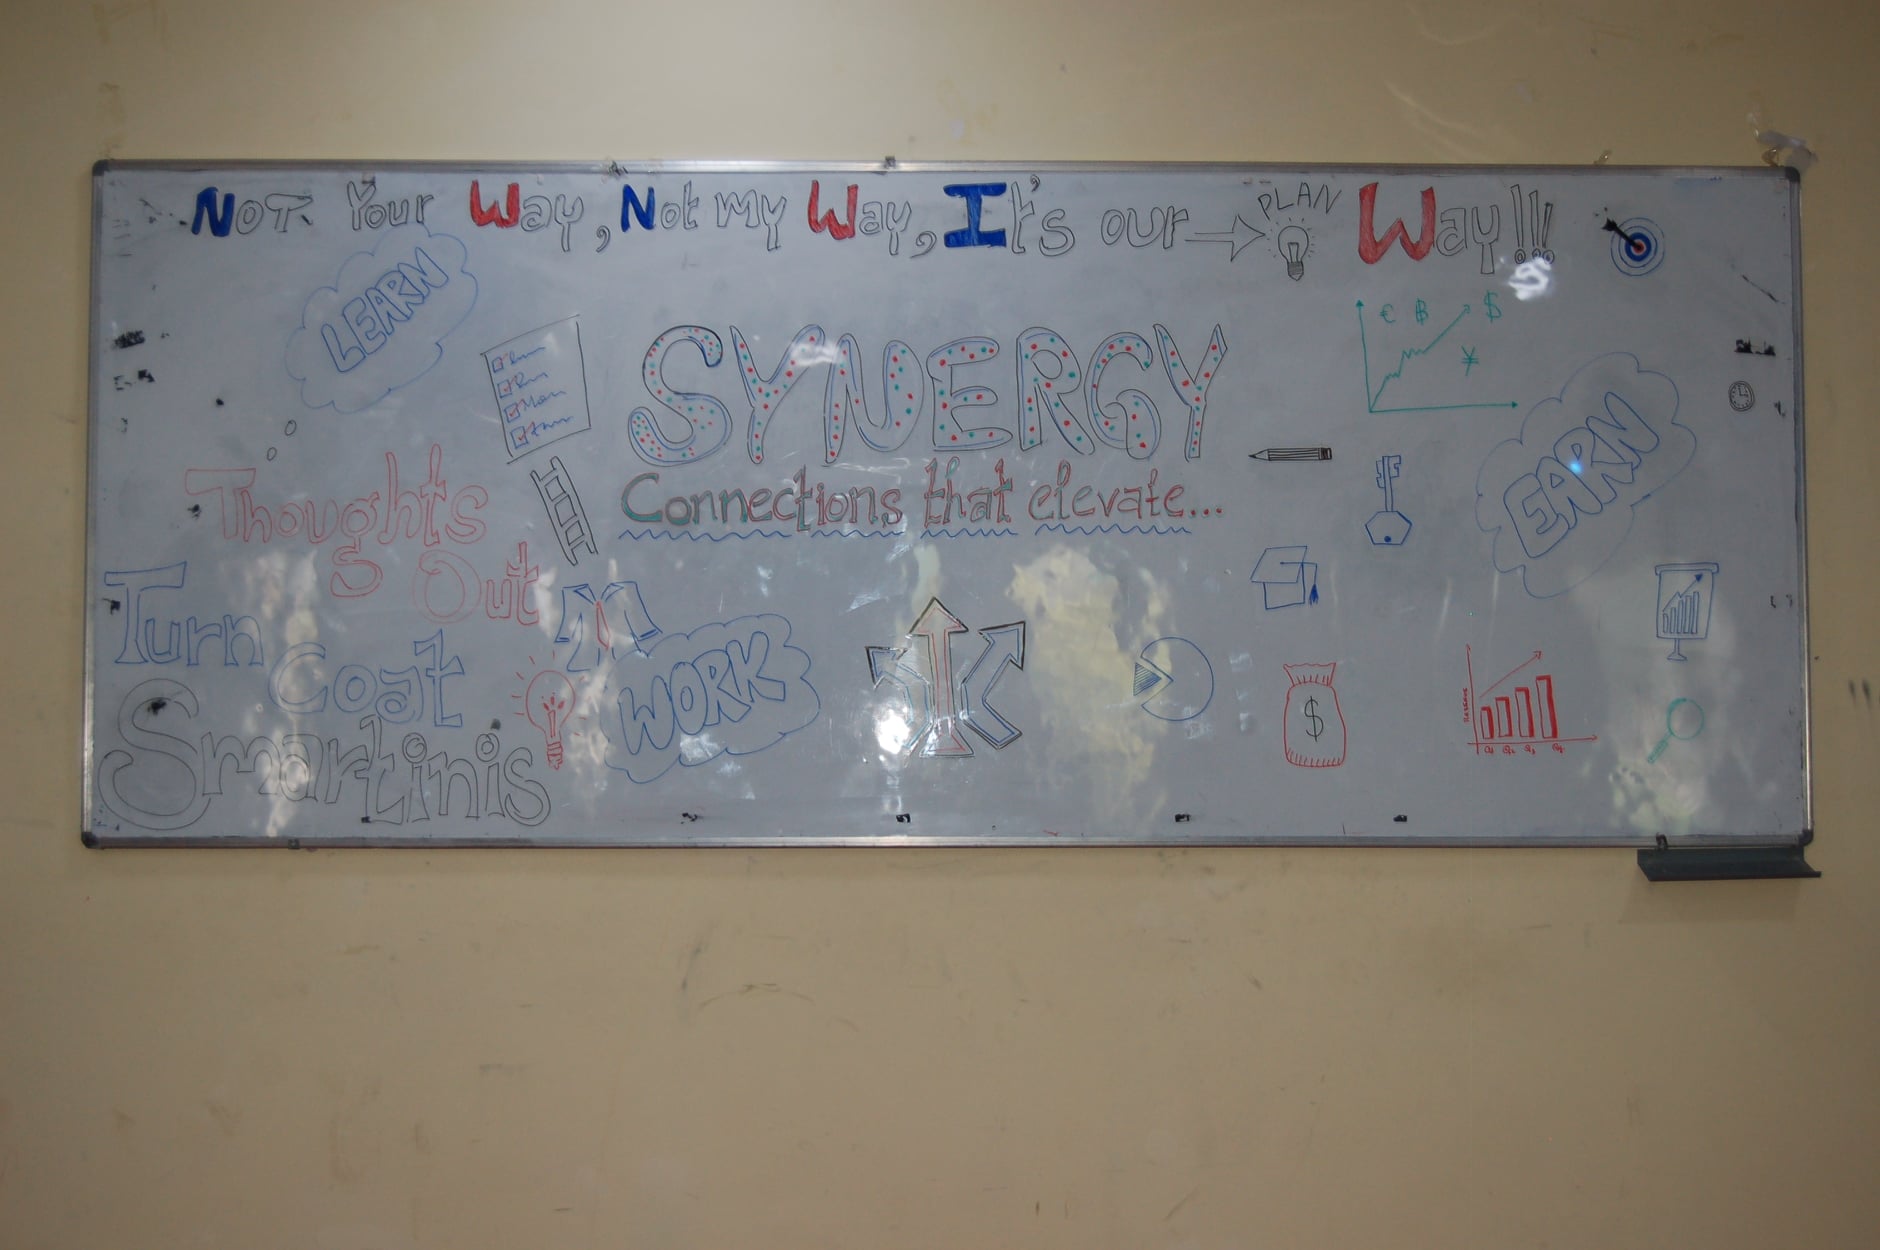 Not Your Way, Not my Way, It's our → PLAN Way!!!
LEARN
SYNERGY
Connections that elevate...
€ ฿ $
¥
EARN
Thoughts
Out
Turn
Coat
Smartinis
WORK
$
Q1 Q2 Q3 Q4